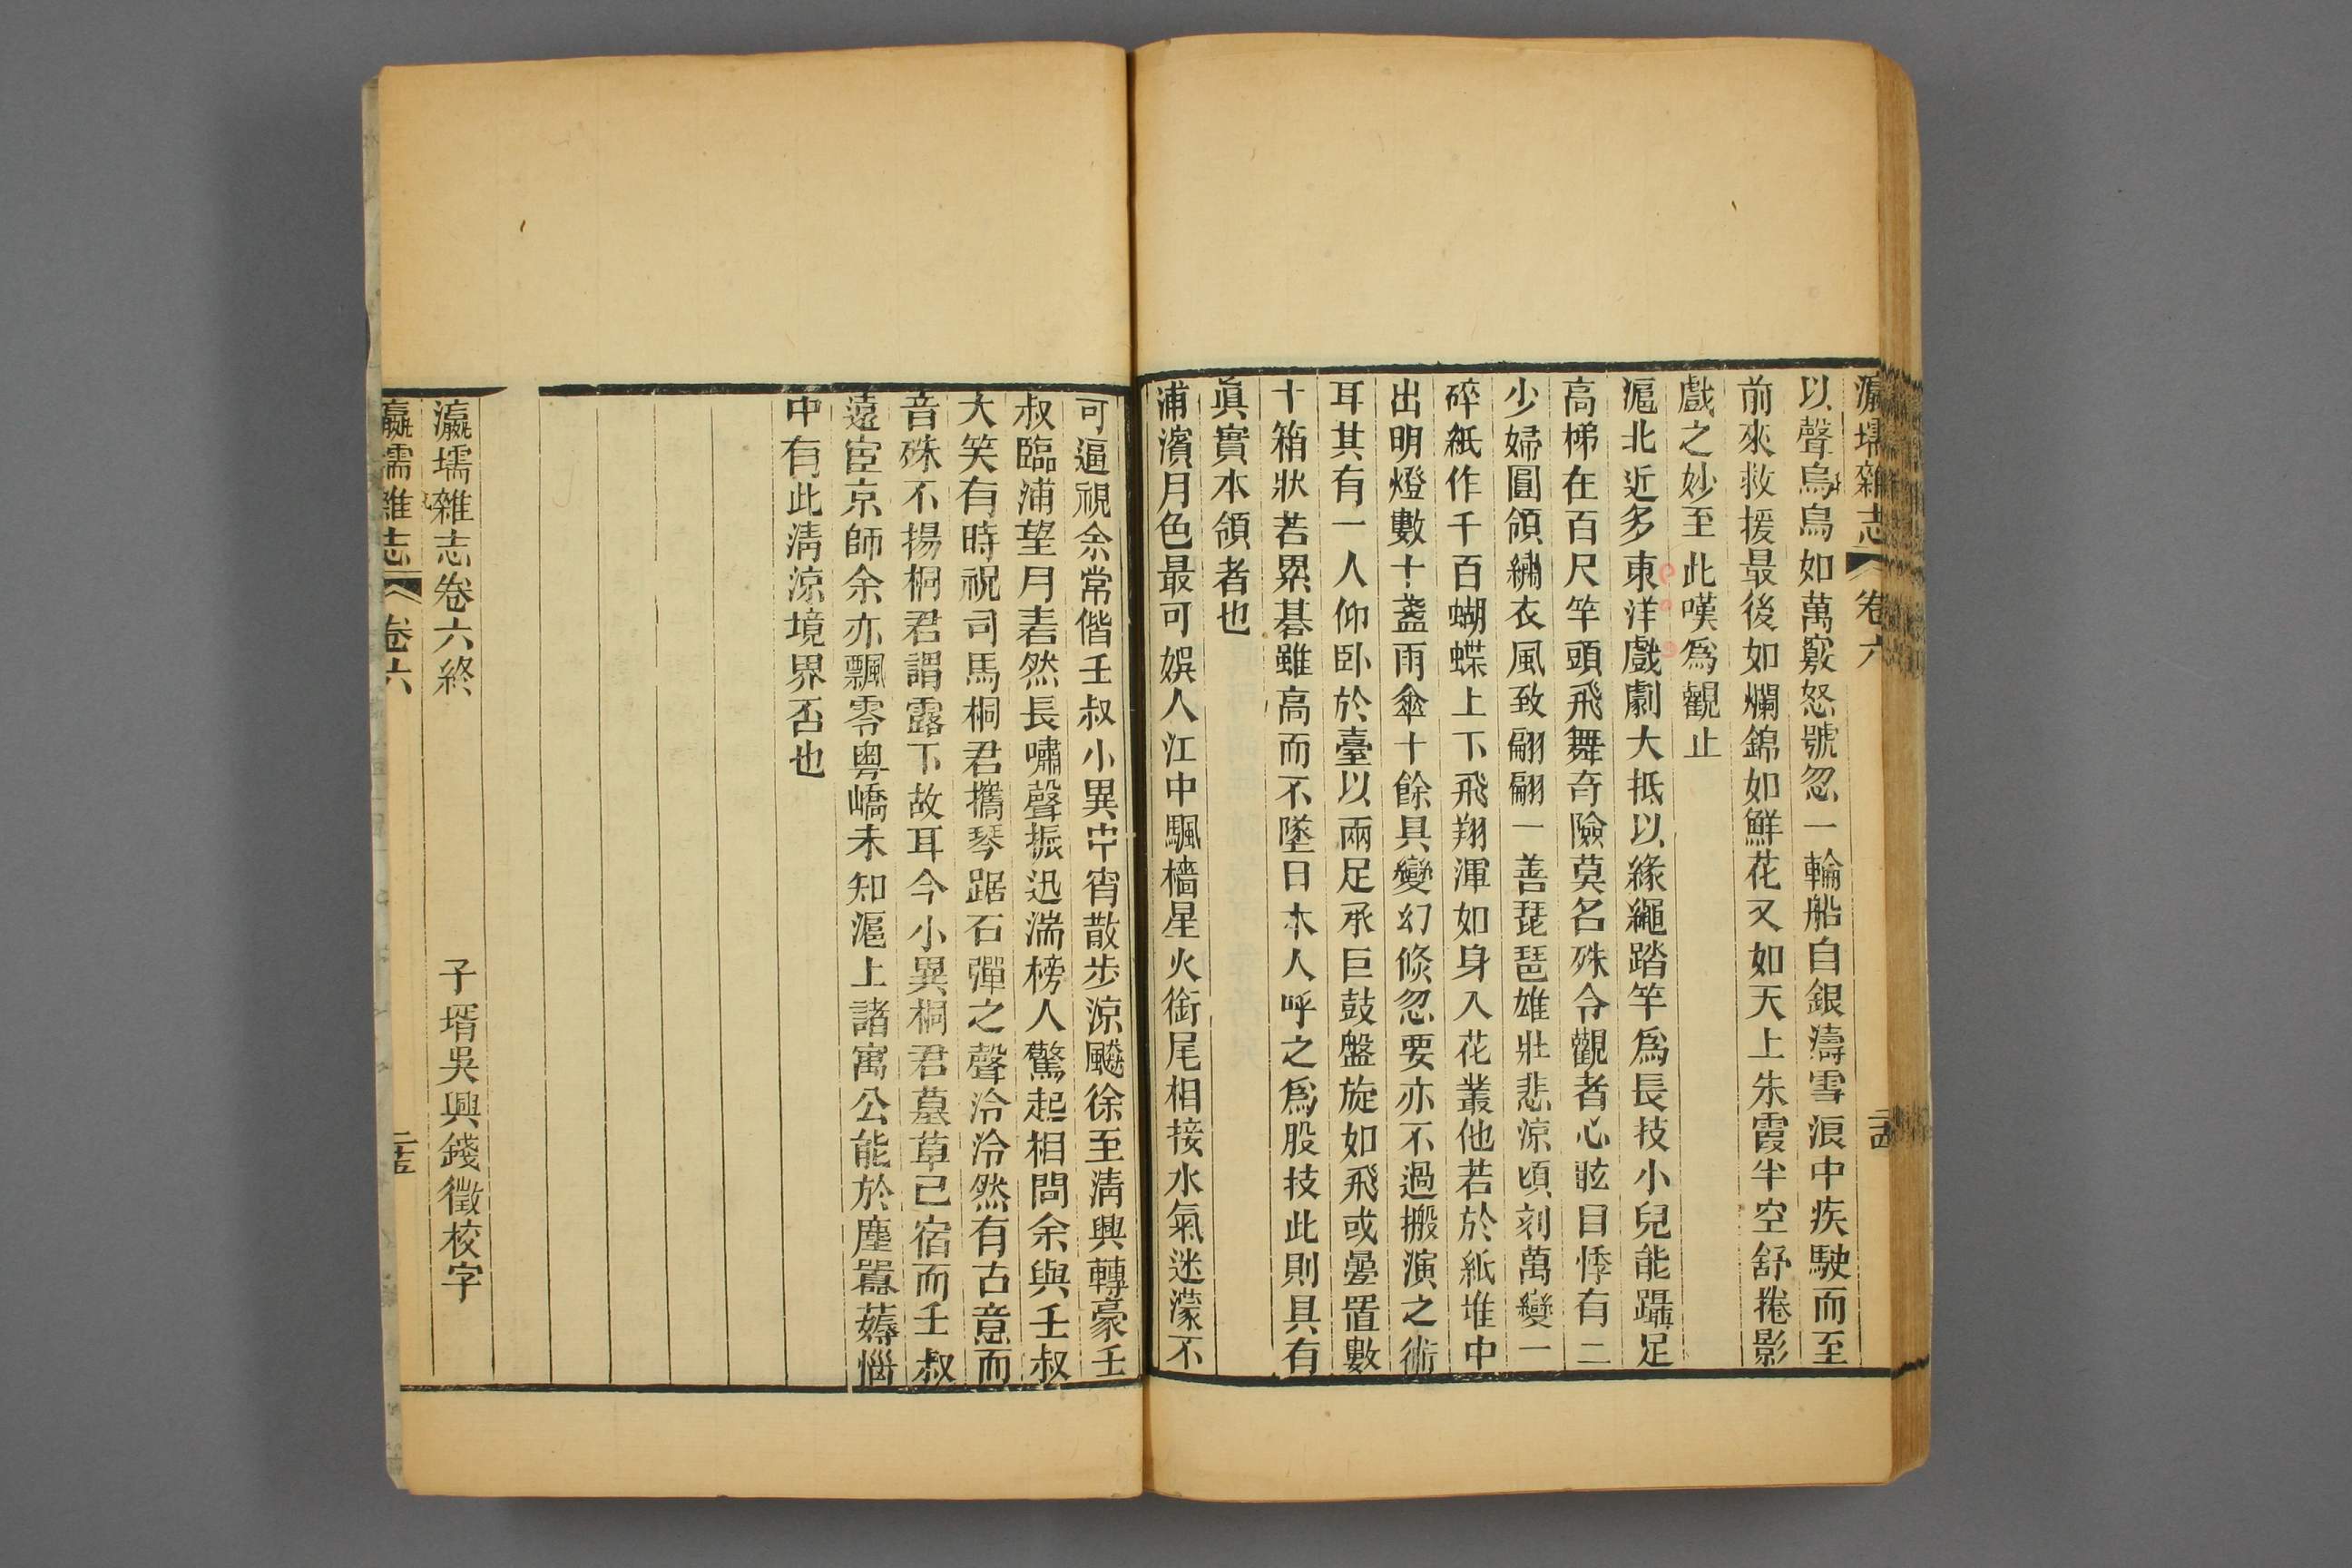 瀛壖雜志 卷六 二古
以聲烏烏如萬竅怒號忽一輪船自銀濤雪浪中疾駛而至
前來救援最後如爛錦如鮮花又如天上朱霞半空舒捲影
戲之妙至此嘆爲觀止
滬北近多東洋戲劇大抵以緣繩踏竿爲長技小兒能躡足
高梯在百尺竿頭飛舞奇險莫名殊令觀者心眩目悸有二
少婦圓領繡衣風致翩翩一善琵琶雄壯悲涼頃刻萬變一
碎紙作千百蝴蝶上下飛翔渾如身入花叢他若於紙堆中
出明燈數十盞雨傘十餘具變幻倏忽要亦不過搬演之術
耳其有一人仰臥於臺以兩足承巨鼓盤旋如飛或疊置數
十箱狀若累碁雖高而不墜日木人呼之爲股技此則具有
眞實本領者也
浦濱月色最可娛人江中颿檣星火銜尾相接水氣迷濛不
可逼視余常偕壬叔小異中宵散步涼颸徐至淸興轉豪壬
叔臨浦望月砉然長嘯聲振迅湍榜人驚起相問余與壬叔
大笑有時祝司馬桐君攜琴踞石彈之聲泠泠然有古意而
音殊不揚桐君謂露下故耳今小異桐君墓草已宿而壬叔
遠宦京師余亦飄零粵嶠未知滬上諸寓公能於塵囂薅惱
中有此淸涼境界否也
瀛壖雜志卷六終 子壻吳興錢徵校字
瀛壖雜志 卷六 二五